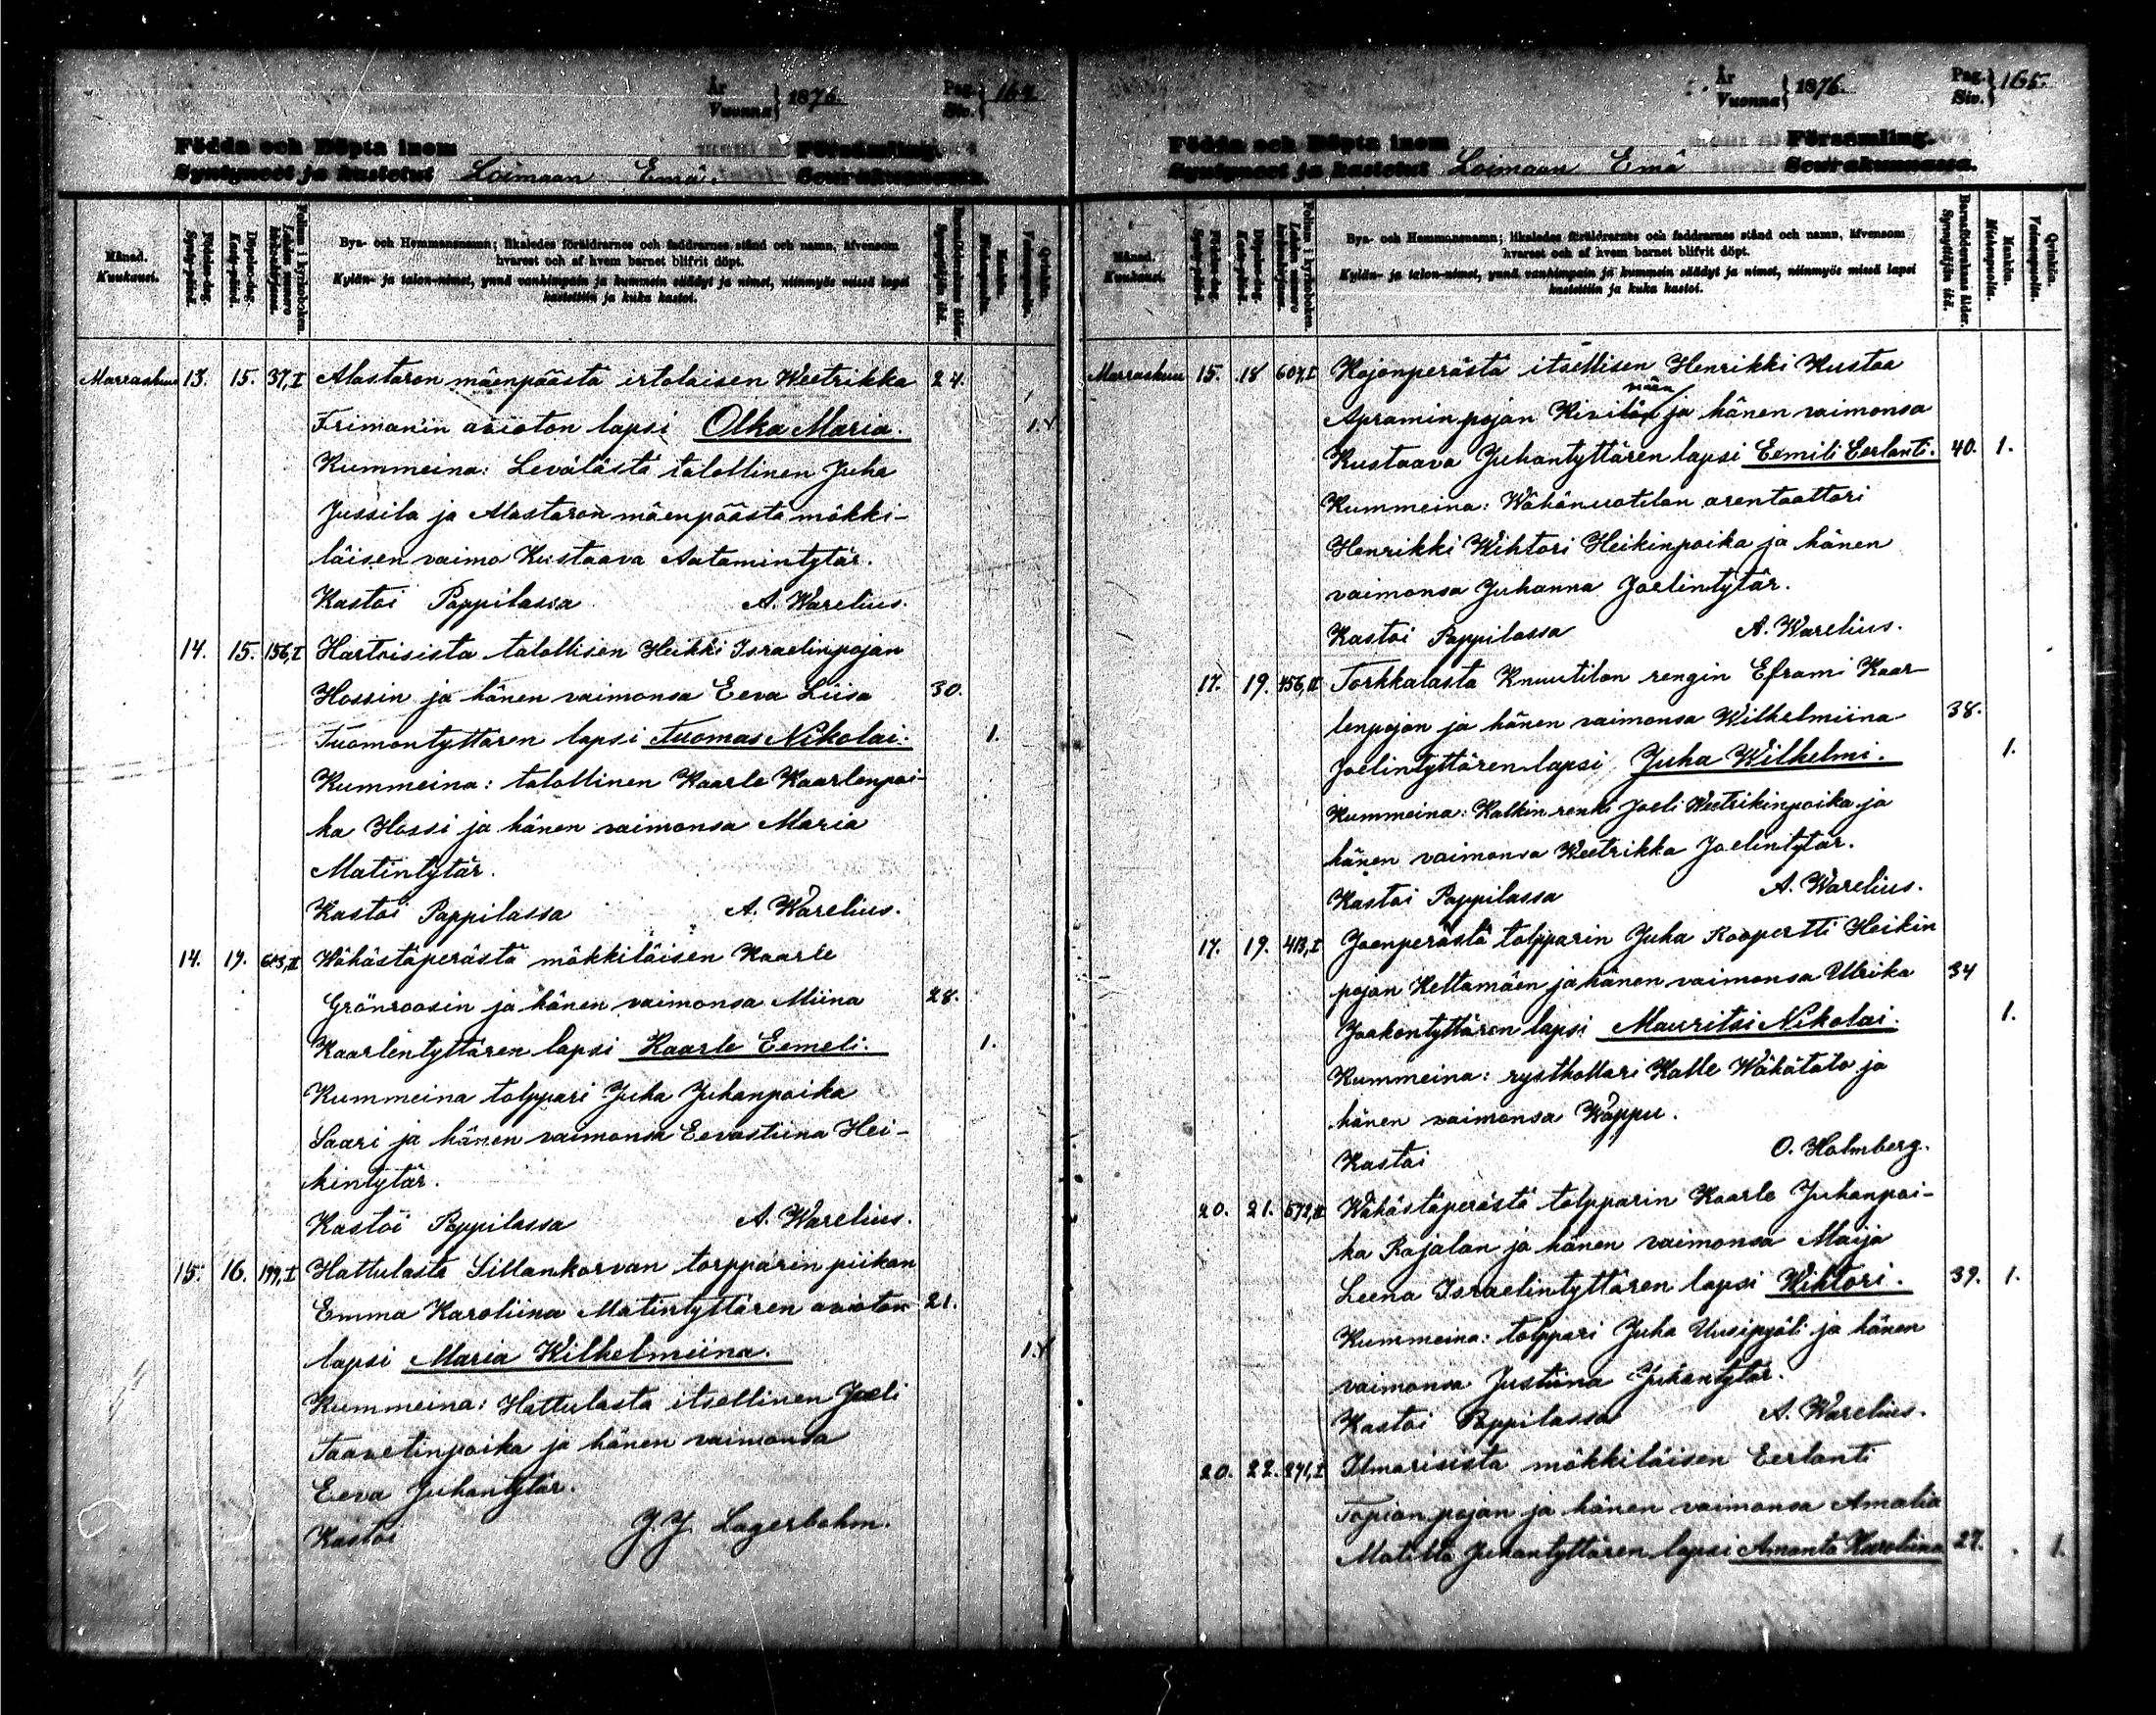 År
Vuonna } 1876.
Pag.
Siv. } 164.
Födda och Döpta inom Församling.
Syntyneet ja kastetut Loimaan Emä. Seurakunnassa.
Månad.
Kuukausi.
Födelse-dag.
Synty-päivä.
Döpelse-dag.
Kaste-päivä.
Folium i kyrkoboken.
Lehden numero kirkonkirjassa.
Bys- och Hemmansnamn; likaledes föräldrarnes och faddrarnes stånd och namn, äfvensom
hvarest och af hvem barnet blifvit döpt.
Kylän- ja talon-nimet, ynnä vanhimpain ja kummein säädyt ja nimet, niinmyös missä lapsi
kastettiin ja kuka kastoi.
Barnaföderskans ålder.
Synnyttäjän ikä.
Mankön.
Miehenpuolia.
Qvinkön.
Vaimonpuolia.
Marraskuu 13. 15. 37, I Alastaron mäenpäästä irtolaisen Weetrikka 24.
Frimanin avioton lapsi Olka Maria. 1.
Kummeina: Levälästä talollinen Juha
Jussila ja Alastaron mäenpäästä mökki-
läisen vaimo Kustaava Aatamintytär.
Kastoi Pappilassa A. Warelius.
14. 15. 156, I Hartoisista talollisen Heikki Israelinpojan
Hossin ja hänen vaimonsa Eeva Liisa 30.
Tuomontyttären lapsi Tuomas Nikolai. 1.
Kummeina: talollinen Kaarle Kaarlenpoi-
ka Hossi ja hänen vaimonsa Maria
Matintytär.
Kastoi Pappilassa A. Warelius.
14. 19. II Wähästäperästä mökkiläisen Kaarle
Grönroosin ja hänen vaimonsa Miina 28.
Kaarlentyttären lapsi Kaarle Eemeli. 1.
Kummeina tolppari Juha Juhanpoika
Saari ja hänen vaimonsa Eevastiina Hei-
kintytär.
Kastoi Pappilassa A. Warelius.
15. 16. 199, I Hattulasta Sillankorvan torpparin piikan
Emma Karoliina Matintyttären avioton 21.
lapsi Maria Wilhelmiina. 1.
Kummeina: Hattulasta itsellinen Joeli
Taavetinpoika ja hänen vaimonsa
Eeva Juhantytär.
Kastoi J. J. Lagerbohm.
År
Vuonna } 1876.
Pag.
Siv. } 165.
Födda och Döpta inom Församling.
Syntyneet ja kastetut Loimaan Emä Seurakunnassa.
Månad.
Kuukausi.
Födelse-dag.
Synty-päivä.
Döpelse-dag.
Kaste-päivä.
Folium i kyrkoboken.
Lehden numero kirkonkirjassa.
Bys- och Hemmansnamn; likaledes föräldrarnes och faddrarnes stånd och namn, äfvensom
hvarest och af hvem barnet blifvit döpt.
Kylän- ja talon-nimet, ynnä vanhimpain ja kummein säädyt ja nimet, niinmyös missä lapsi
kastettiin ja kuka kastoi.
Barnaföderskans ålder.
Synnyttäjän ikä.
Mankön.
Miehenpuolia.
Qvinkön.
Vaimonpuolia.
Marraskuu 15. 18 604, I Kojonperästä itsellisen Henrikki Kustaa
Apramin pojan ja hänen vaimonsa
Kustaava Juhantyttären lapsi Eemili Eerlanti. 40. 1.
Kummeina: Wähänuotilan arentaattori
Henrikki Wihtori Heikinpoika ja hänen
vaimonsa Juhanna Joelintytär.
Kastoi Pappilassa A. Warelius.
17. 19. 456, II Torkkalasta Knuutilan rengin Eframi Kaar-
lenpojan ja hänen vaimonsa Wilhelmiina 38.
Joelintyttären lapsi Juha Wilhelmi. 1.
Kummeina: Kalkin renki Joeli Weetrikinpoika ja
hänen vaimonsa Weetrikka Joelintytär.
Kastoi Pappilassa A. Warelius.
17. 19. 413, I Joenperästä tolpparin Juha Roopertti Heikin
pojan Keltamäen ja hänen vaimonsa Ulrika 34
Jaakontyttären lapsi Mauritsi Nikolai. 1.
Kummeina: rysthollari Kalle Wähätalo ja
hänen vaimonsa Wappu.
Kastoi O. Holmberg.
20. 21. 572, II Wähästäperästä tolpparin Kaarle Juhanpoi-
ka Rajalan ja hänen vaimonsa Maija
Leena Israelintyttären lapsi Wihtori. 39. 1.
Kummeina: tolppari Juha Uusipyöli ja hänen
vaimonsa Justiina Juhantytär.
Kastoi Pappilassa A. Warelius.
20. 22. 241, I Ilmarisista mökkiläisen Eerlanti
Topian pojan ja hänen vaimonsa Amalia
Matilta Juhantyttären lapsi Amanta Karoliina 27. 1.